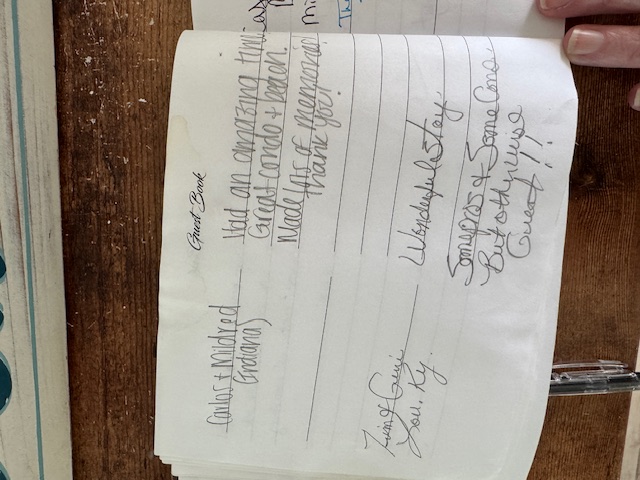 Guest Book
Carlos + Mildred
(Indiana)
Had an amazing time
Great condo + beach.
Made lots of memories!
Thank you!
Lou. Ky.
Wonderful stay
Some Pros & Some Cons
But otherwise
Great!!